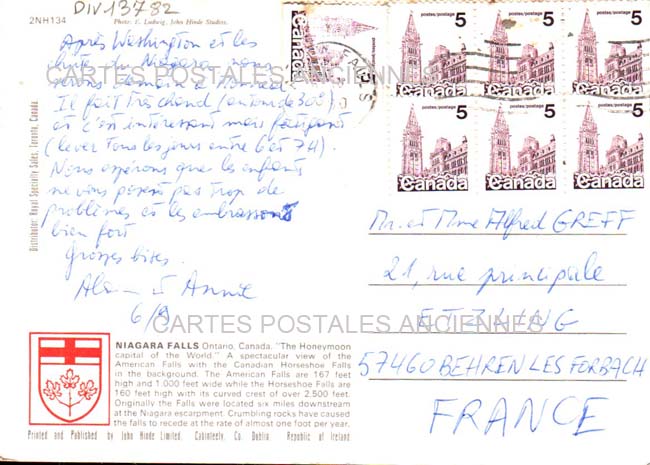 DIV13782
2NH134
Photo: E. Ludwig, John Hinde Studios.
Après Washington et les
chutes du Niagara nous
serons demain à Montréal
Il fait très chaud (autour de 30°)
et c'est intéressant mais fatigant
(lever tous les jours entre 6 et 7H).
Nous espérons que les enfants
ne vous posent pas trop de
problèmes et les embrassons
bien fort
Grosses bises.
Alain et Annie
6/8
CARTES POSTALES ANCIENNES
Distributor: Royal Specialty Sales, Toronto, Canada.
postes/postage
5
Canada
postes/postage
5
Canada
postes/postage
5
Canada
postes/postage
5
Canada
postes/postage
5
Canada
postes/postage
5
Canada
postes/postage
5
Canada
FALLS
Mr. et Mme Alfred GREFF
21, rue principale
ETZLING
57460 BEHREN LES FORBACH
FRANCE
CARTES POSTALES ANCIENNES
NIAGARA FALLS Ontario, Canada. "The Honeymoon
capital of the World." A spectacular view of the
American Falls with the Canadian Horseshoe Falls
in the background. The American Falls are 167 feet
high and 1,000 feet wide while the Horseshoe Falls are
160 feet high with its curved crest of over 2,500 feet.
Originally the Falls were located six miles downstream
at the Niagara escarpment. Crumbling rocks have caused
the falls to recede at the rate of almost one foot per year.
Printed and Published by John Hinde Limited, Cabinteely, Co. Dublin, Republic of Ireland